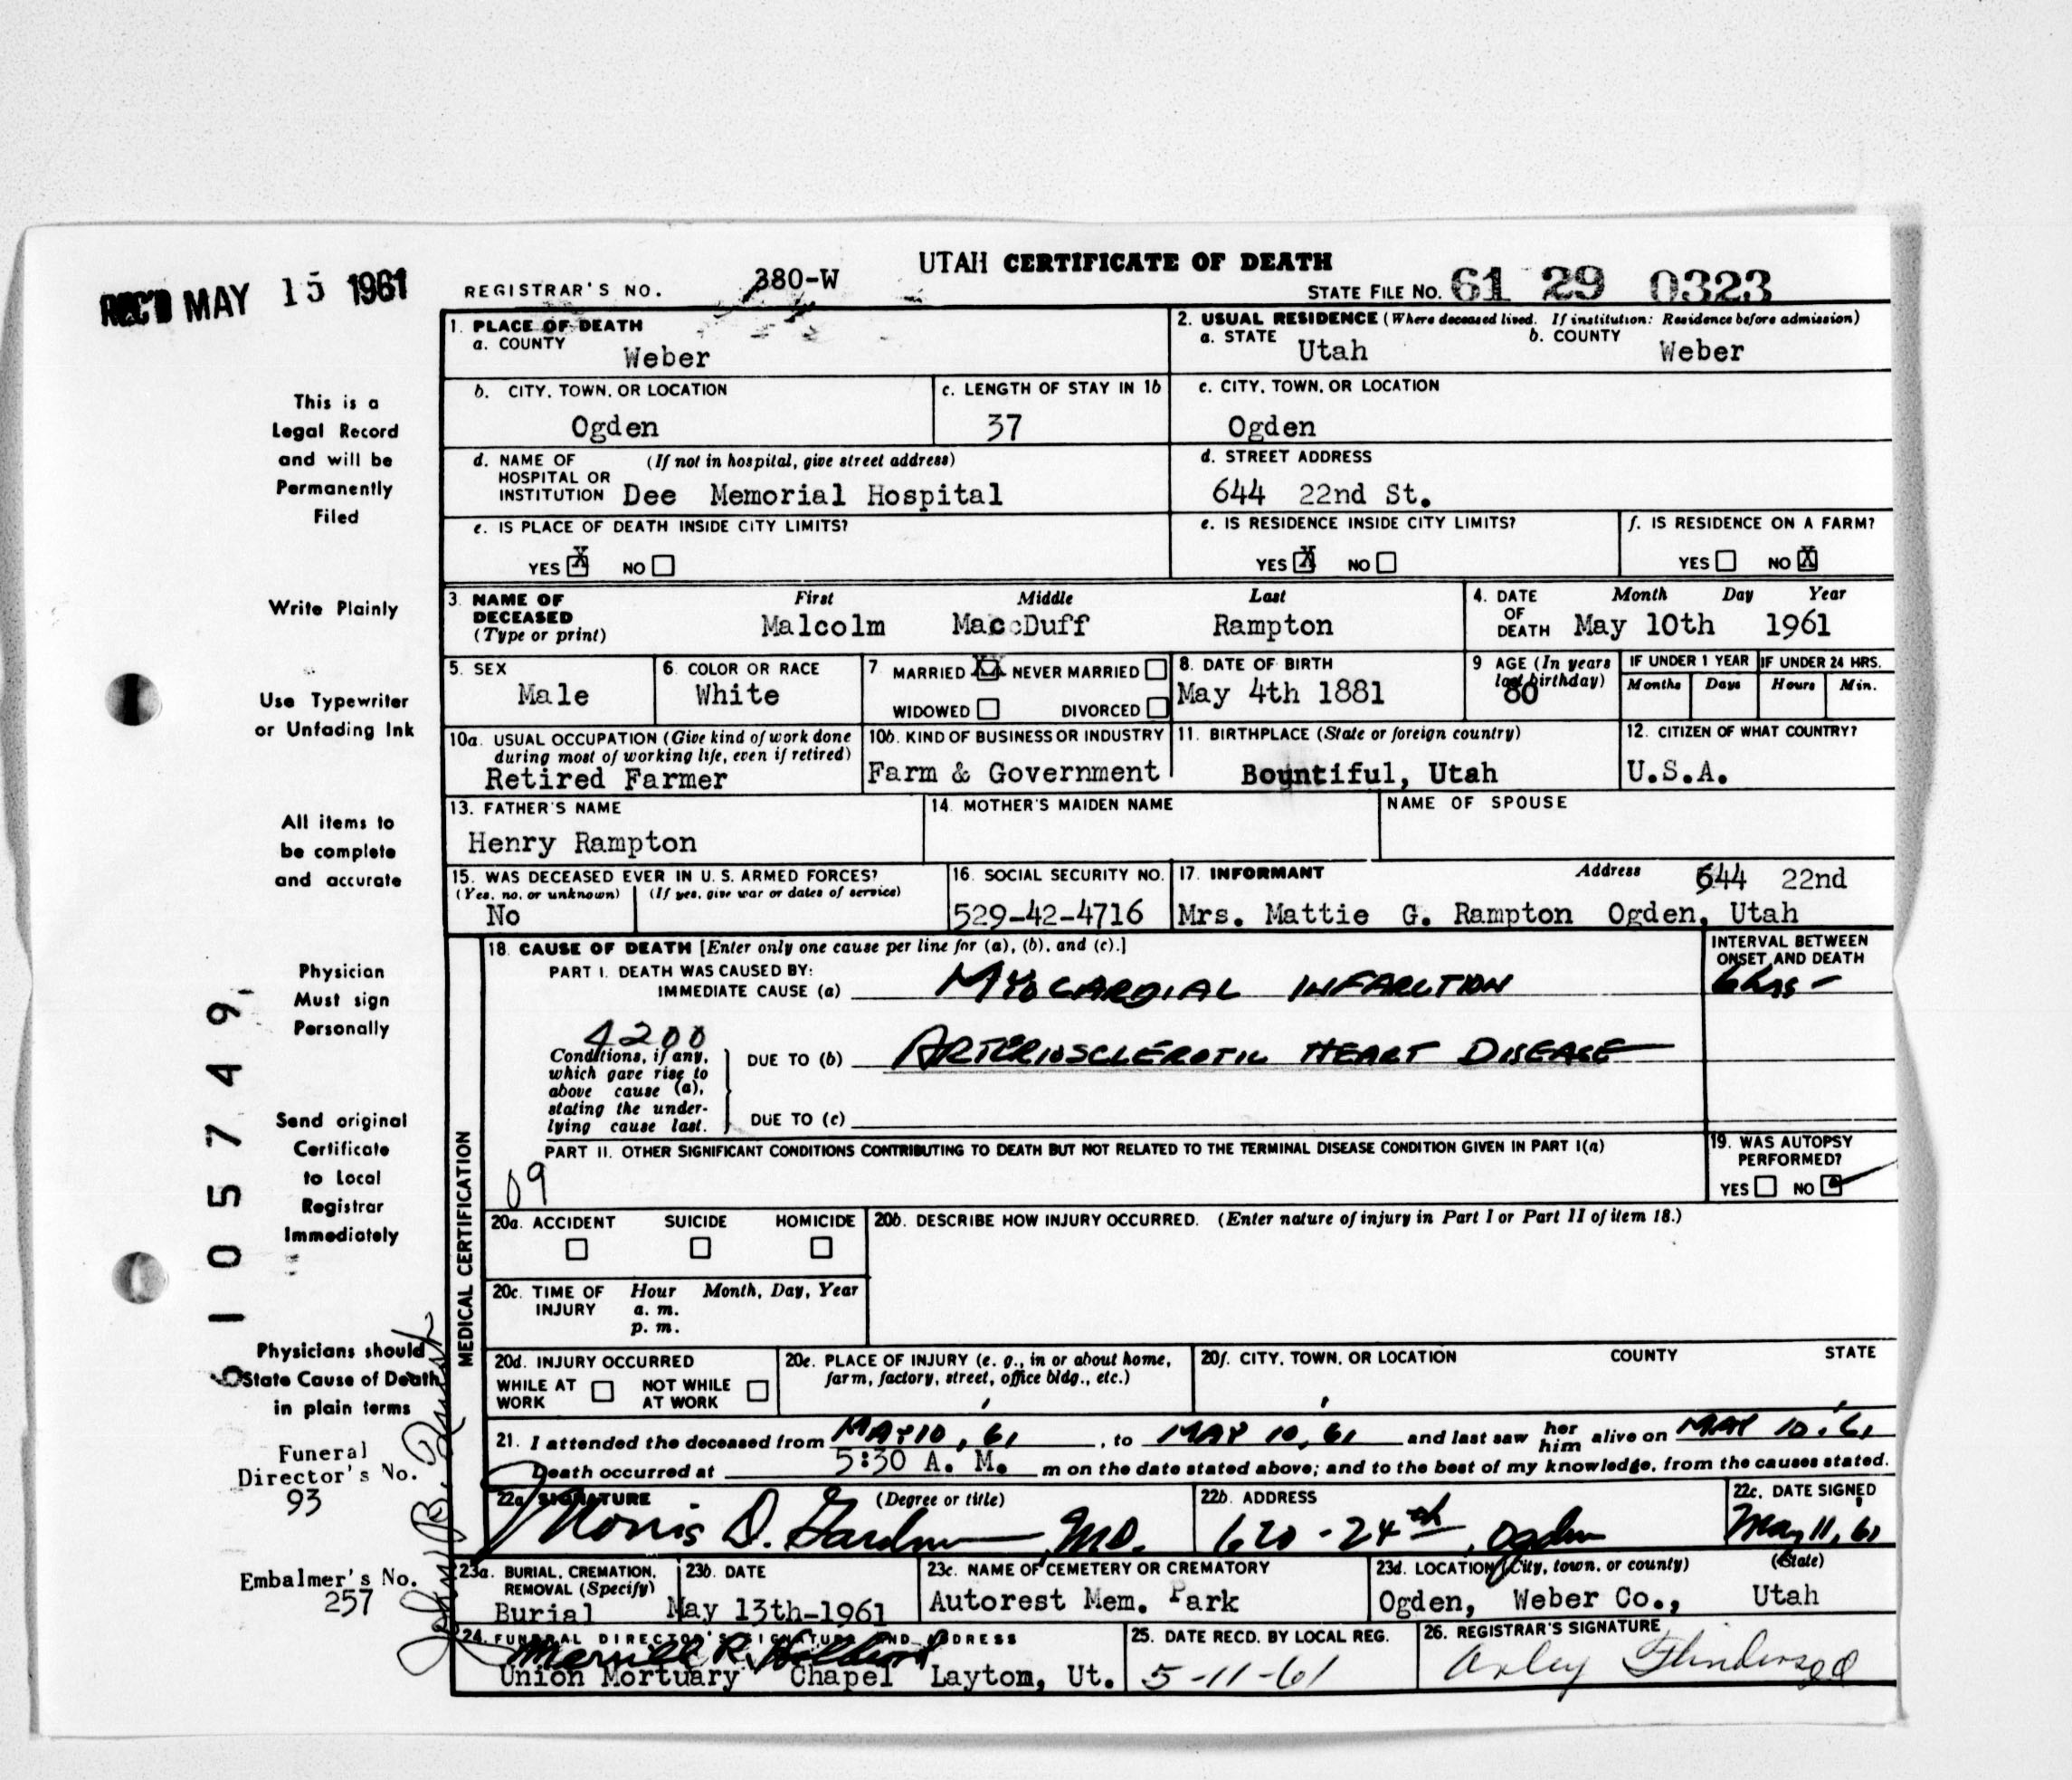 UTAH CERTIFICATE OF DEATH
REC'D MAY 15 1961
REGISTRAR'S NO. 380-W
STATE FILE NO. 61 29 0323
1. PLACE OF DEATH
a. COUNTY
Weber
2. USUAL RESIDENCE (Where deceased lived. If institution: Residence before admission)
a. STATE Utah b. COUNTY Weber
b. CITY, TOWN, OR LOCATION
Ogden
c. LENGTH OF STAY IN 1b
37
c. CITY, TOWN, OR LOCATION
Ogden
d. NAME OF (If not in hospital, give street address)
HOSPITAL OR
INSTITUTION Dee Memorial Hospital
d. STREET ADDRESS
644 22nd St.
e. IS PLACE OF DEATH INSIDE CITY LIMITS?
YES X NO
e. IS RESIDENCE INSIDE CITY LIMITS?
YES X NO
f. IS RESIDENCE ON A FARM?
YES NO X
3. NAME OF DECEASED (Type or print)
First Middle Last
Malcolm MaccDuff Rampton
4. DATE OF DEATH
Month Day Year
May 10th 1961
5. SEX
Male
6. COLOR OR RACE
White
7 MARRIED XX NEVER MARRIED
WIDOWED DIVORCED
8. DATE OF BIRTH
May 4th 1881
9 AGE (In years last birthday)
80
IF UNDER 1 YEAR
Months Days
IF UNDER 24 HRS.
Hours Min.
10a. USUAL OCCUPATION (Give kind of work done
during most of working life, even if retired)
Retired Farmer
10b. KIND OF BUSINESS OR INDUSTRY
Farm & Government
11. BIRTHPLACE (State or foreign country)
Bountiful, Utah
12. CITIZEN OF WHAT COUNTRY?
U.S.A.
13. FATHER'S NAME
Henry Rampton
14. MOTHER'S MAIDEN NAME
NAME OF SPOUSE
15. WAS DECEASED EVER IN U.S. ARMED FORCES?
(Yes, no, or unknown) (If yes, give war or dates of service)
No
16. SOCIAL SECURITY NO.
529-42-4716
17. INFORMANT Address 644 22nd
Mrs. Mattie G. Rampton Ogden, Utah
MEDICAL CERTIFICATION
18. CAUSE OF DEATH [Enter only one cause per line for (a), (b), and (c).]
PART I. DEATH WAS CAUSED BY:
IMMEDIATE CAUSE (a) MYOCARDIAL INFARCTION
INTERVAL BETWEEN
ONSET AND DEATH
6 hrs -
4200
Conditions, if any,
which gave rise to
above cause (a),
stating the under-
lying cause last.
DUE TO (b) ARTERIOSCLEROTIC HEART DISEASE
DUE TO (c)
PART II. OTHER SIGNIFICANT CONDITIONS CONTRIBUTING TO DEATH BUT NOT RELATED TO THE TERMINAL DISEASE CONDITION GIVEN IN PART I(a)
09
19. WAS AUTOPSY
PERFORMED?
YES NO
20a. ACCIDENT SUICIDE HOMICIDE
20b. DESCRIBE HOW INJURY OCCURRED. (Enter nature of injury in Part I or Part II of item 18.)
20c. TIME OF INJURY Hour Month, Day, Year
a. m.
p. m.
20d. INJURY OCCURRED
WHILE AT WORK NOT WHILE AT WORK
20e. PLACE OF INJURY (e. g., in or about home,
farm, factory, street, office bldg., etc.)
20f. CITY, TOWN, OR LOCATION COUNTY STATE
21. I attended the deceased from MAY 10, 61, to MAY 10, 61 and last saw her him alive on MAY 10, 61
Death occurred at 5:30 A. M. m on the date stated above; and to the best of my knowledge, from the causes stated.
22a. SIGNATURE (Degree or title)
Morris D. Gardner MD.
22b. ADDRESS
620 - 24th, Ogden
22c. DATE SIGNED
May 11, 61
23a. BURIAL, CREMATION,
REMOVAL (Specify)
Burial
23b. DATE
May 13th-1961
23c. NAME OF CEMETERY OR CREMATORY
Autorest Mem. Park
23d. LOCATION (City, town, or county) (State)
Ogden, Weber Co., Utah
24. FUNERAL DIRECTOR'S SIGNATURE AND ADDRESS
Merrill R.
Union Mortuary Chapel Laytom, Ut.
25. DATE RECD. BY LOCAL REG.
5-11-61
26. REGISTRAR'S SIGNATURE
This is a
Legal Record
and will be
Permanently
Filed
Write Plainly
Use Typewriter
or Unfading Ink
All items to
be complete
and accurate
Physician
Must sign
Personally
Send original
Certificate
to Local
Registrar
Immediately
Physicians should
State Cause of Death
in plain terms
Funeral
Director's No.
93
Embalmer's No.
257
0105749